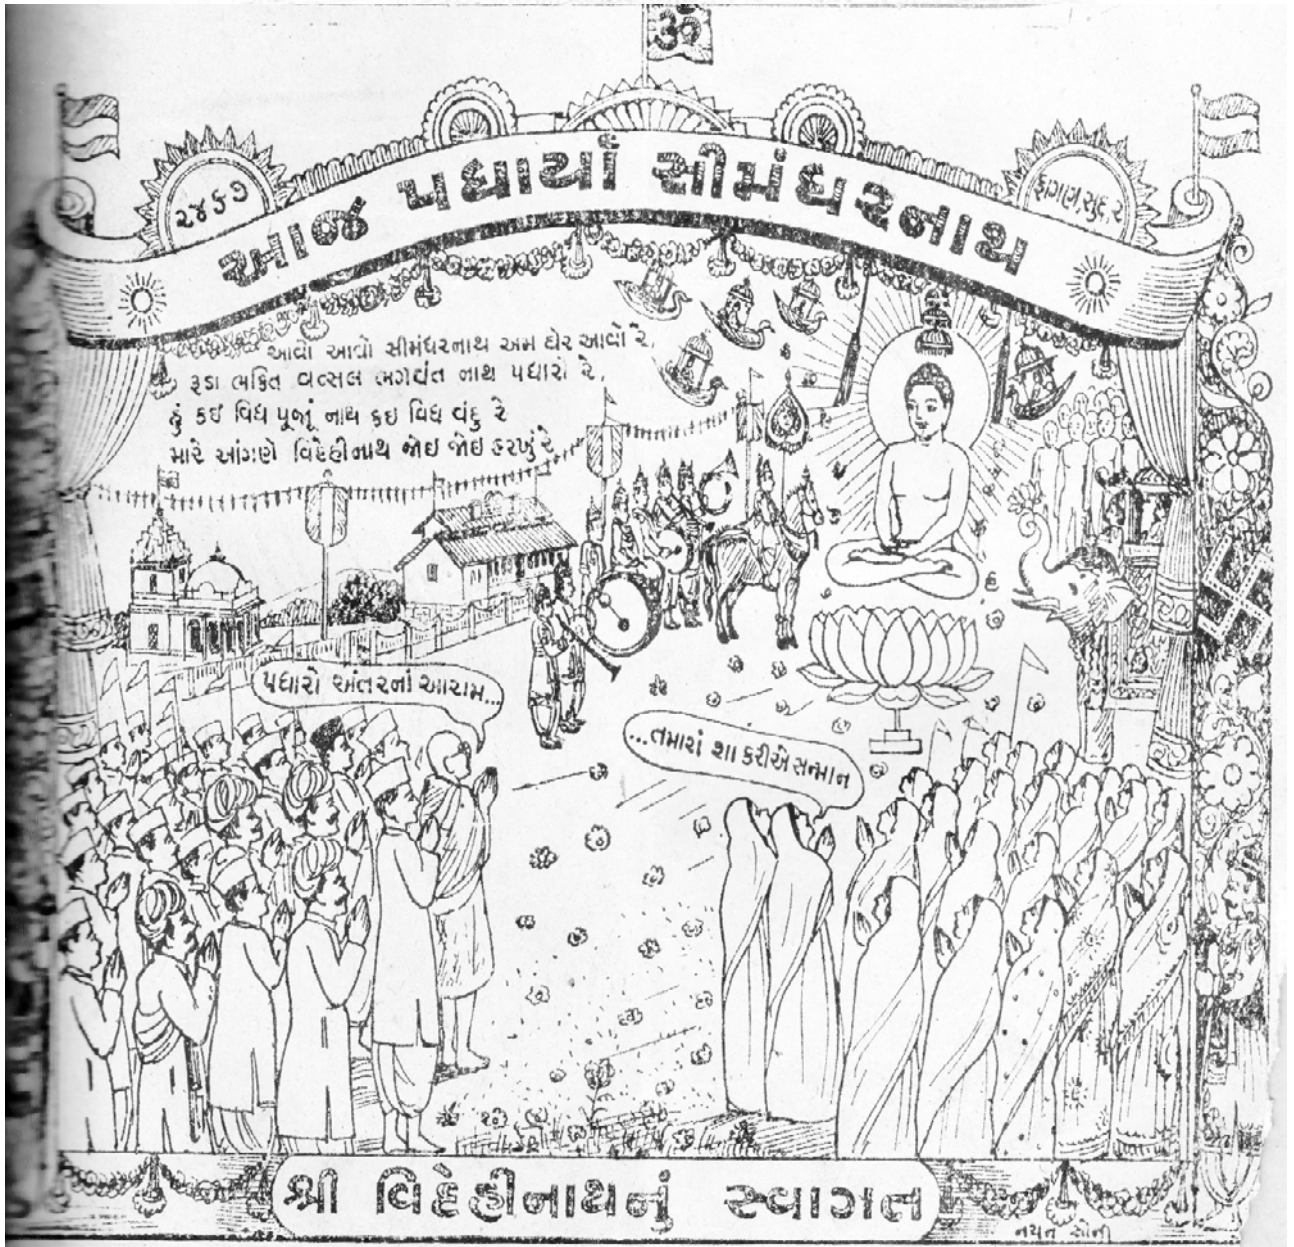 ૐ
૨૪૬૭
ફાગણ સુદ ૨
આજ પધાર્યા સીમંધરનાથ
આવો આવો સીમંધરનાથ અમ ઘેર આવો રે,
રૂડા ભક્તિ વત્સલ ભગવંત નાથ પધારો રે,
હું કઈ વિધ પૂજું નાથ કઈ વિધ વંદુ રે
મારે આંગણે વિદેહીનાથ જોઈ જોઈ હરખું રે
પધારો અંતરનાં આરામ...
...તમારાં શા કરીએ સન્માન
શ્રી વિદેહીનાથનું સ્વાગત
નયન સોની